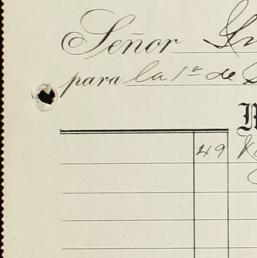 Señor
para la 1ª de
49